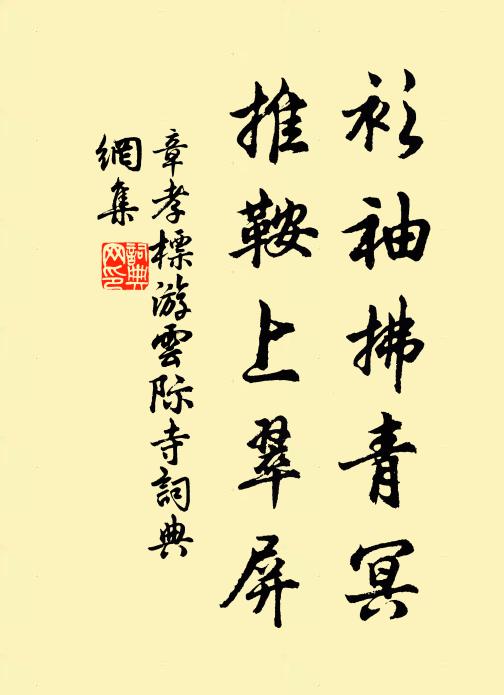 衫袖拂青冥
推鞍上翠屏
章孝標游雲际寺詞典
網集
詞典網印